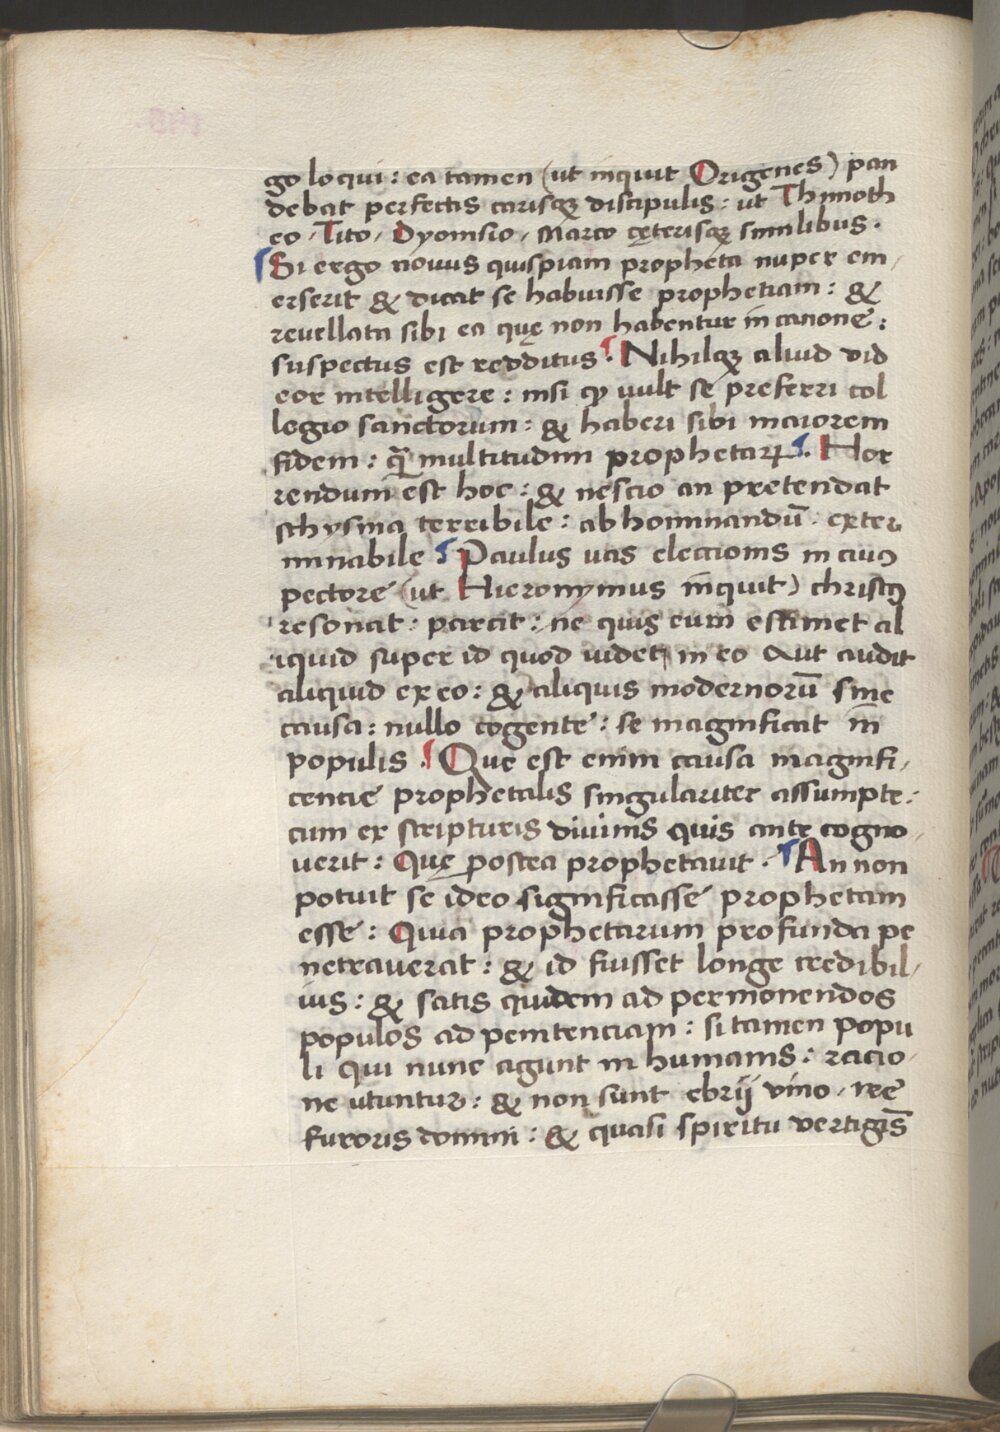 go loqui : ea tamen (ut inquit Origenes) pan
debat perfectis carisqꝫ discipulis : ut Thimoth
eo · Tito · Dyonisio · Marco cęterisqꝫ similibus ·
Si ergo novus quispiam propheta nuper em,
erserit & dicat se habuisse prophetiam : &
revellata sibi ea quę non habentur in canone :
suspectus est redditus · Nihilqꝫ aliud vid
eor intelligere : nisi qꝫ vult se preferri col
legio sanctorum : & haberi sibi maiorem
fidem : qᷓ multitudini prophetarꝝ. Hor
rendum est hoc : & nescio an pretendat
schysma terribile : abhominandū · exter
minabile Paulus vas electionis in cuiꝰ
pectore (ut Hieronymus inquit) christꝰ
resonat : parcit : ne quis eum estimet al
iquid super id quod videt in eo Aut audit
aliquid ex eo : & aliquis modernorū sine
causa : nullo cogente : se magnificat in
populis . Que est enim causa magnifi,
centie prophetalis singulariter assumpte :
cum ex scripturis divinis quis ante cogno,
verit : Quę postea prophetavit · An non
potuit se ideo significasse prophetam
esse : Quia prophetarum profunda pe
netraverat : & id fuisset longe credibil,
ius : & satis quidem ad permonendos
populos ad penitenciam : si tamen popu
li qui nunc agunt in humanis : racio,
ne utuntur : & non sunt ebrij vino · iree
furoris domini : & quasi spiritu vertigīs